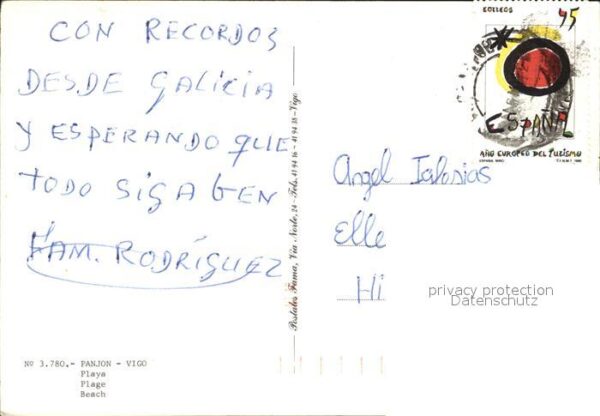 CON RECORDOS
DESDE GALICIA
Y ESPERANDO QUE
TODO SIGA BEN
FAM. RODRÍGUEZ
Nº 3.780.- PANJON - VIGO
Playa
Plage
Beach
Postales Fama, Vía Norte, 24 - Tels. 41 94 16 - 41 94 18 - Vigo
CORREOS 45
ESPAÑA
AÑO EUROPEO DEL TURISMO
Angel Iglesias
Elle
Hi
privacy protection
Datenschutz